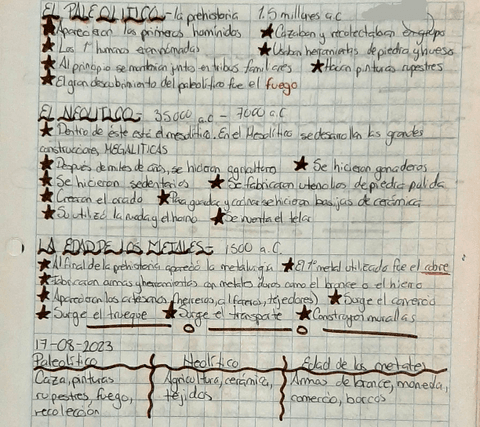 EL PALEOLITICO - la prehistoria 1.5 millones a.C
★ Aparecieron los primeros homínidos ★ Cazaban y recolectaban en grupo
★ Los 1º humanos eran nómadas ★ Usaban herramientas de piedra y hueso
★ Al principio se mantenían juntos en tribus familiares ★ Hacían pinturas rupestres
★ El gran descubrimiento del paleolítico fue el fuego
EL NEOLITICO - 35000 a.C - 7000 a.C
★ Dentro de éste está el mesolítico. En el Mesolítico se desarrollan las grandes
construcciones, MEGALITICAS
★ Después de miles de años, se hicieron agricultores ★ Se hicieron ganaderos
★ Se hicieron sedentarios ★ Se fabricaron utensilios de piedra pulida
★ Crearon el arado ★ Para guardar y cocinar se hicieron vasijas de cerámica
★ Se utilizó la rueda y el horno ★ Se inventa el telar
LA EDAD DE LOS METALES - 1500 a.C.
★ Al final de la prehistoria apareció la metalurgia ★ El 1º metal utilizado fue el cobre
★ Fabricaron armas y herramientas con metales duros como el bronce o el hierro
★ Aparecieron los artesanos (herreros, alfareros, tejedores) ★ Surge el comercio
★ Surge el trueque ★ Surge el transporte ★ Construyen murallas
17-08-2023
Paleolítico Neolítico Edad de los metales
Caza, pinturas Agricultura, cerámica, Armas de bronce, moneda,
rupestres, fuego, tejidos comercio, barcos
recolección